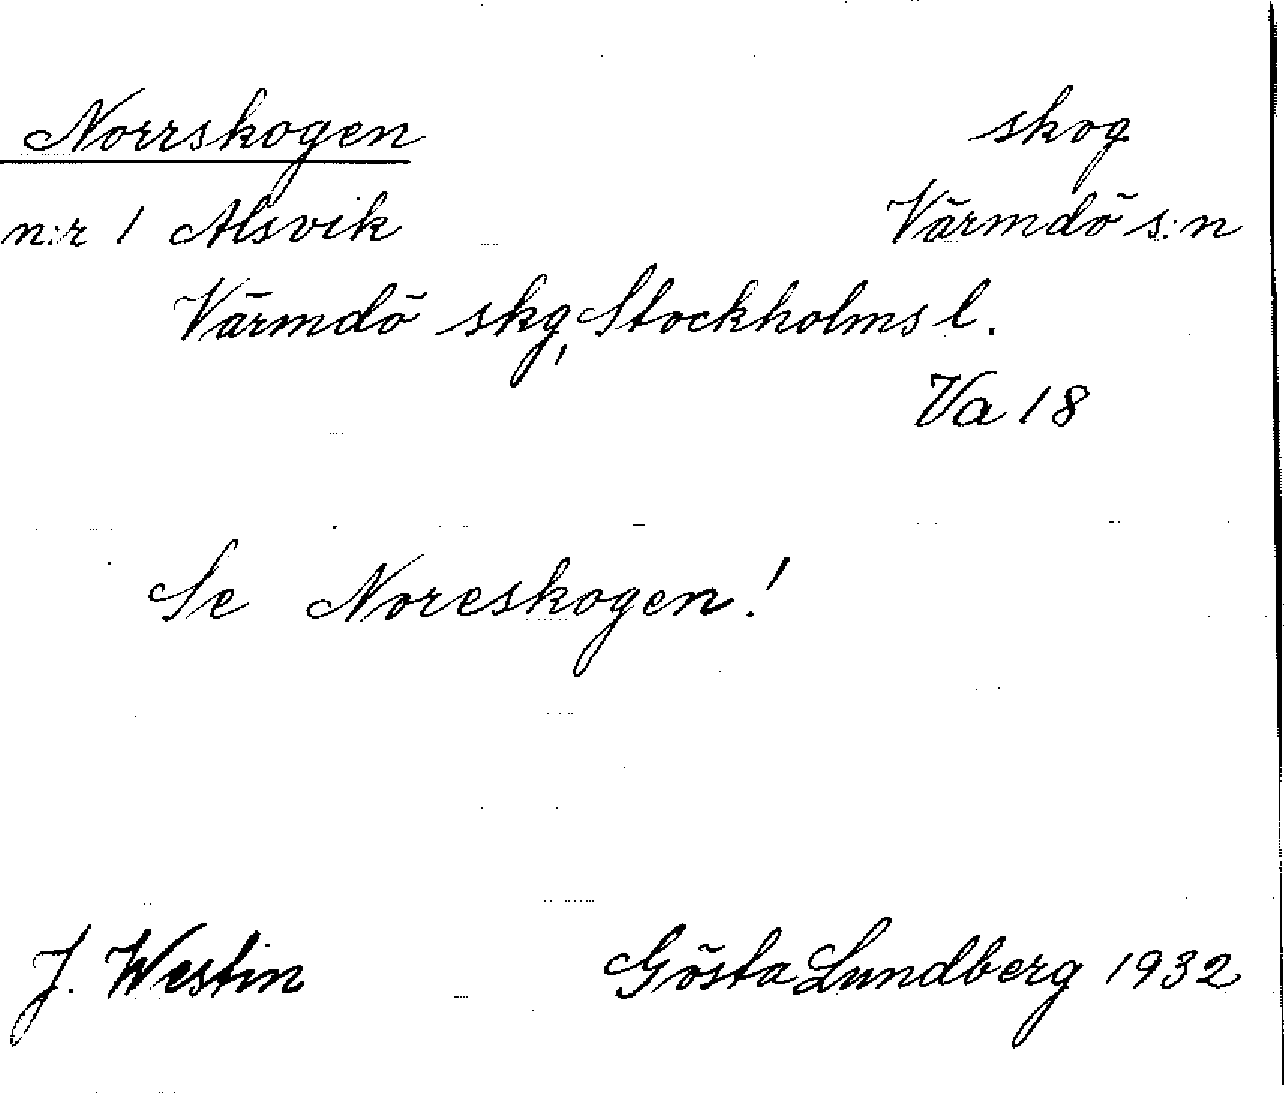 Norrskogen skog
n:r 1 Alsvik Värmdö s:n
Värmdö skg, Stockholms l.
Va 18
Se Noreskogen!
J. Westin Gösta Lundberg 1932